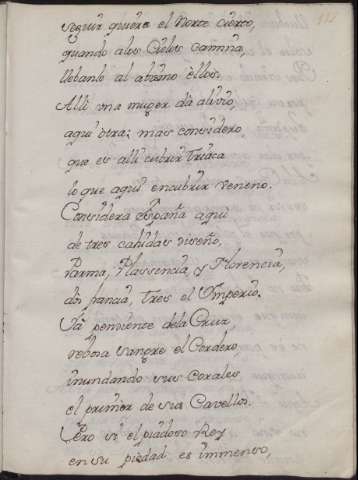 seguir quiere el Norte cierto,
quando a los Cielos camina,
llebanle al abismo ellos.
Alli una muger dà alivio,
aqui otra; mas considero
que es alli cubrir Triaca
lo que aqui encubrir veneno.
Considera España aqui
de tres cahidas diseño,
Parma, Plassencia, y Florencia,
dos francia, tres el Ymperio.
Ya pendiente dela Cruz,
rebosa sangre el Cordero,
inundando sus corales
el primor de sus Cavellos.
Pero si el piadoso Rey
en su piedad es immenso,